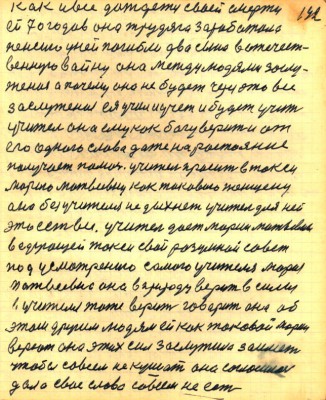 132
как и все дождети своей смерти
ей 70 годов она трудяга заработала
пенсию у ней погибли два сина в отечест-
венную вайну она между людями заслу-
жения а почему она не будет чери это все
заслужения ея учил и учет и будет учит
учител она ему как богу верит и от
его одного слова даже на растояние
получает помощ. учител просит в такси
марию матвевну как таковою женщену
она без учителя не дыхнет учител для ней
это все. учител дает марии матвевни
в едующей такси свой разумной совет
под усмотрению самого учителя мария
матвевна она в природу верит в силы
учителя тоже верит говарит она об
этом другим людям ей как таковой марии
верят она этих сил заслужила
чтобы совсем не кушат она
дала свае слова совсем не ест